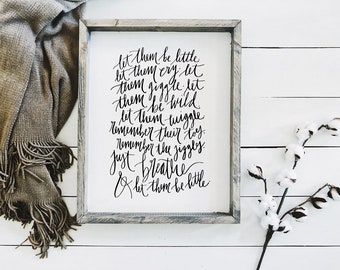 let them be little
let them cry let
them giggle let
them be wild
let them wiggle
remember their toes
remember the giggles
just breathe
& let them be little